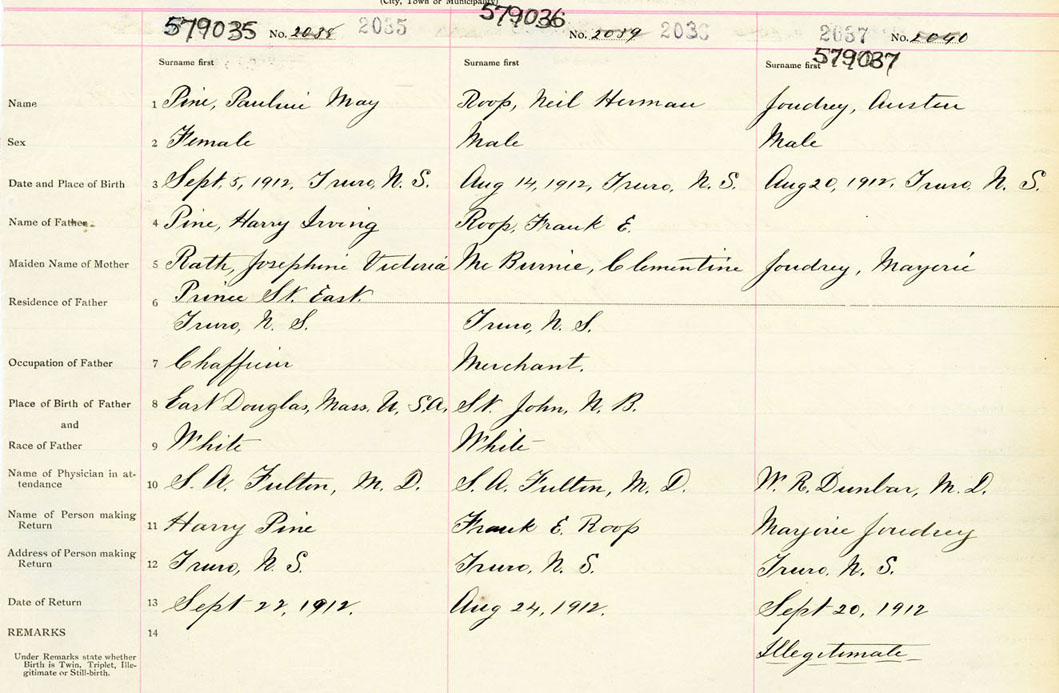 (City, Town or Municipality)
579035 No. 2038 2035 579036 No. 2039 2036 2037 No. 2040 579037
Surname first Surname first Surname first
Name 1 Pine, Pauline May Roop, Neil Herman Joudrey, Austen
Sex 2 Female Male Male
Date and Place of Birth 3 Sept. 5, 1912, Truro, N. S. Aug 14, 1912, Truro, N. S. Aug 20, 1912, Truro, N. S.
Name of Father 4 Pine, Harry Irving Roop, Frank E.
Maiden Name of Mother 5 Rath, Josephine Victoria Mc Burnie, Clementine Joudrey, Marjorie
Residence of Father 6 Prince St. East.
Truro, N. S. Truro, N. S.
Occupation of Father 7 Chaffieur Merchant.
Place of Birth of Father 8 East Douglas, Mass. U. S.A. St. John, N. B.
and
Race of Father 9 White White
Name of Physician in at-
tendance 10 S. A. Fulton, M. D. S. A. Fulton, M. D. W. R. Dunbar, M. D.
Name of Person making
Return 11 Harry Pine Frank E. Roop Marjorie Joudrey
Address of Person making
Return 12 Truro, N. S. Truro, N. S. Truro, N. S.
Date of Return 13 Sept 22, 1912. Aug 24, 1912. Sept 20, 1912
REMARKS 14
Under Remarks state whether
Birth is Twin, Triplet, Ille-
gitimate or Still-birth.
Illegitimate